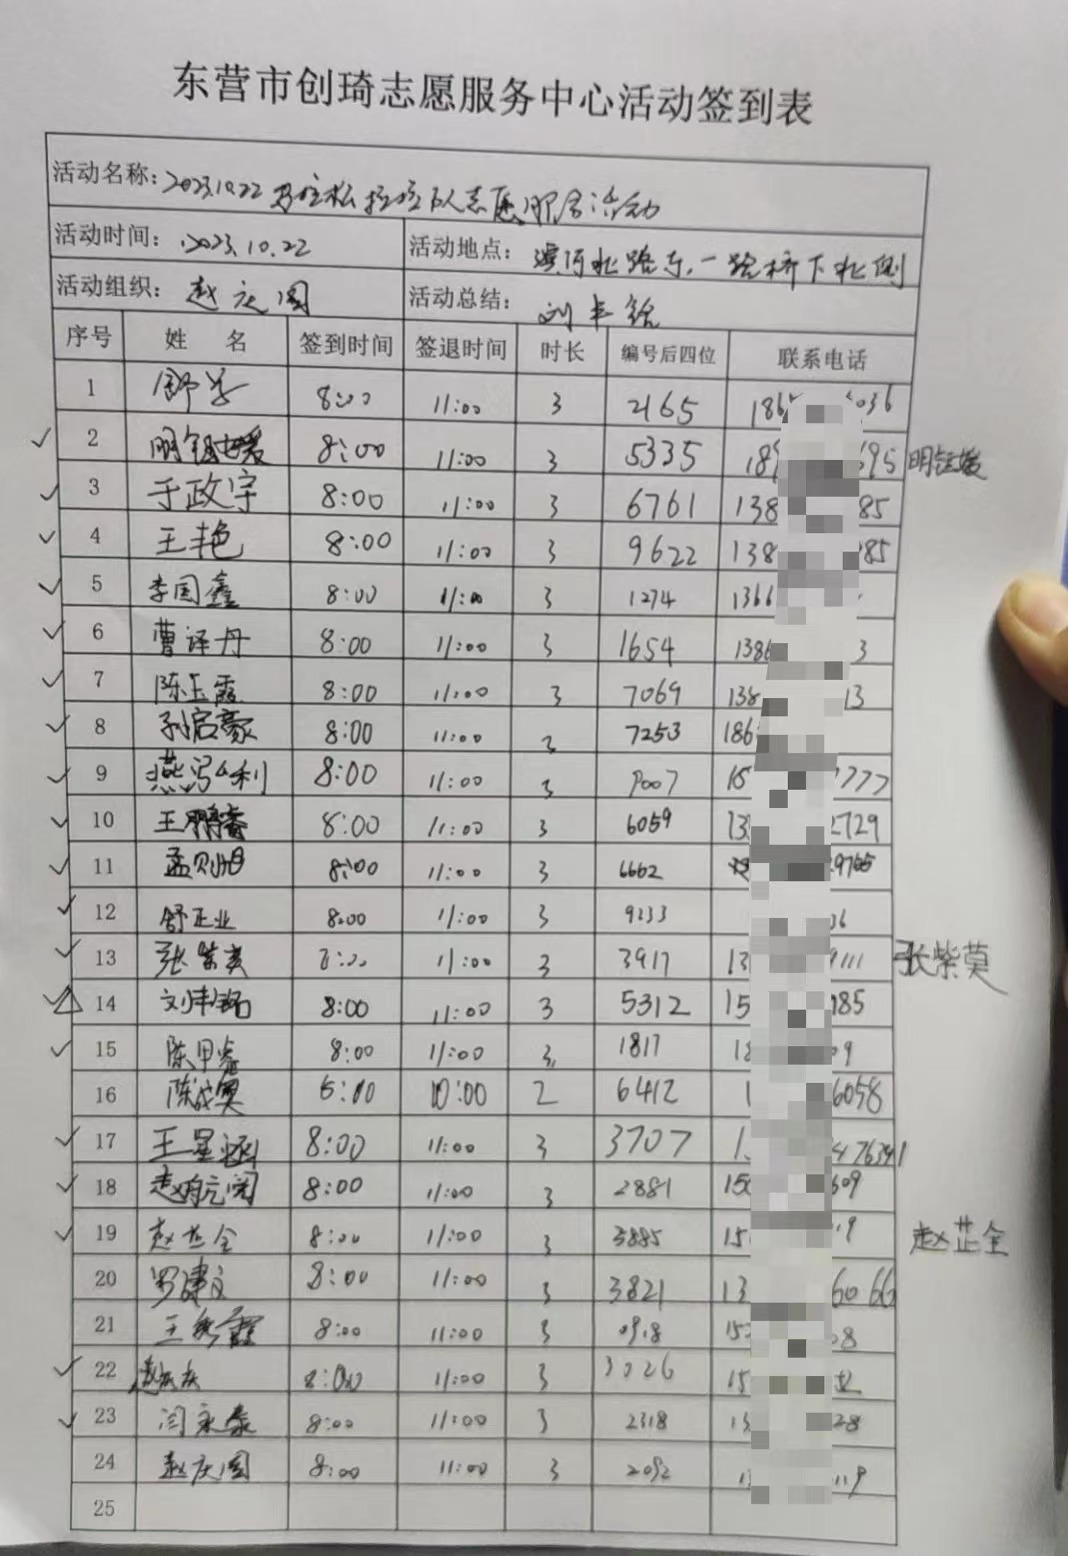 东营市创琦志愿服务中心活动签到表
活动名称：2023.10.22 志愿服务活动
活动时间：2023.10.22 活动地点：滨河北路东一路桥下北侧
活动组织：赵庆国 活动总结：刘丰铭
序号 姓 名 签到时间 签退时间 时长 编号后四位 联系电话
1 舒 8:00 11:00 3 2165 186 036
2 明钰媛 8:00 11:00 3 5335 189 695 明钰媛
3 于政宇 8:00 11:00 3 6761 138 85
4 王艳 8:00 11:00 3 9622 138 85
5 李国鑫 8:00 11:00 3 1274 1366
6 曹译丹 8:00 11:00 3 1654 138 3
7 陈玉霞 8:00 11:00 3 7069 138 13
8 孙启豪 8:00 11:00 3 7253 186
9 燕 利 8:00 11:00 3 9007 15 777
10 王鹏睿 8:00 11:00 3 6059 13 2729
11 孟则旭 8:00 11:00 3 6662
12 舒正业 8:00 11:00 3 9233 36
13 张紫莫 8:00 11:00 3 3917 13 9111 张紫莫
14 刘丰铭 8:00 11:00 3 5312 15 985
15 陈甲 8:00 11:00 3 1817 18 09
16 陈 8:00 10:00 2 6412 1 6058
17 王星涵 8:00 11:00 3 3707 1 76341
18 赵 8:00 11:00 3 2881 150 609
19 赵芷全 8:00 11:00 3 3885 15 19 赵芷全
20 罗建文 8:00 11:00 3 3821 13 6066
21 王 鑫 8:00 11:00 3 0918 152 08
22 赵 8:00 11:00 3 3026 15 52
23 闫家豪 8:00 11:00 3 2318 13 28
24 赵庆国 8:00 11:00 3 2092 119
25